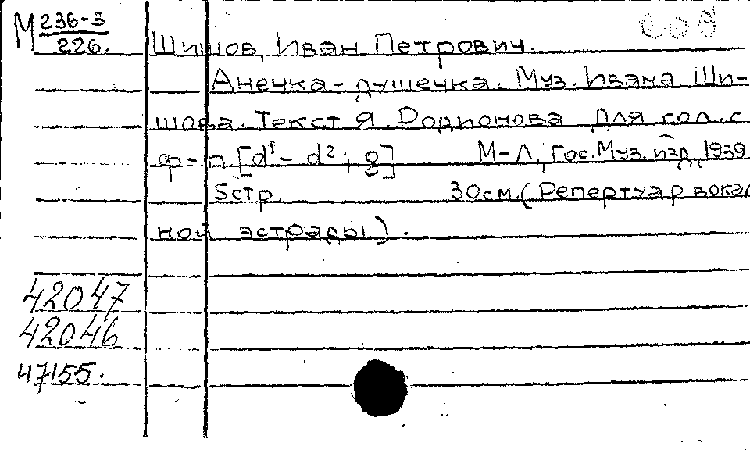 М 236-3
226.
Шишов, Иван Петрович.
Анечка-душечка. Муз. Ивана Ши-
шова. Текст Я. Родионова для гол. с
ф-п. [d¹- d²; g] М-Л, Гос. Муз. изд, 1939
5стр. 30см. (Репертуар вокаль
ной эстрады).
42047
42046
47155.